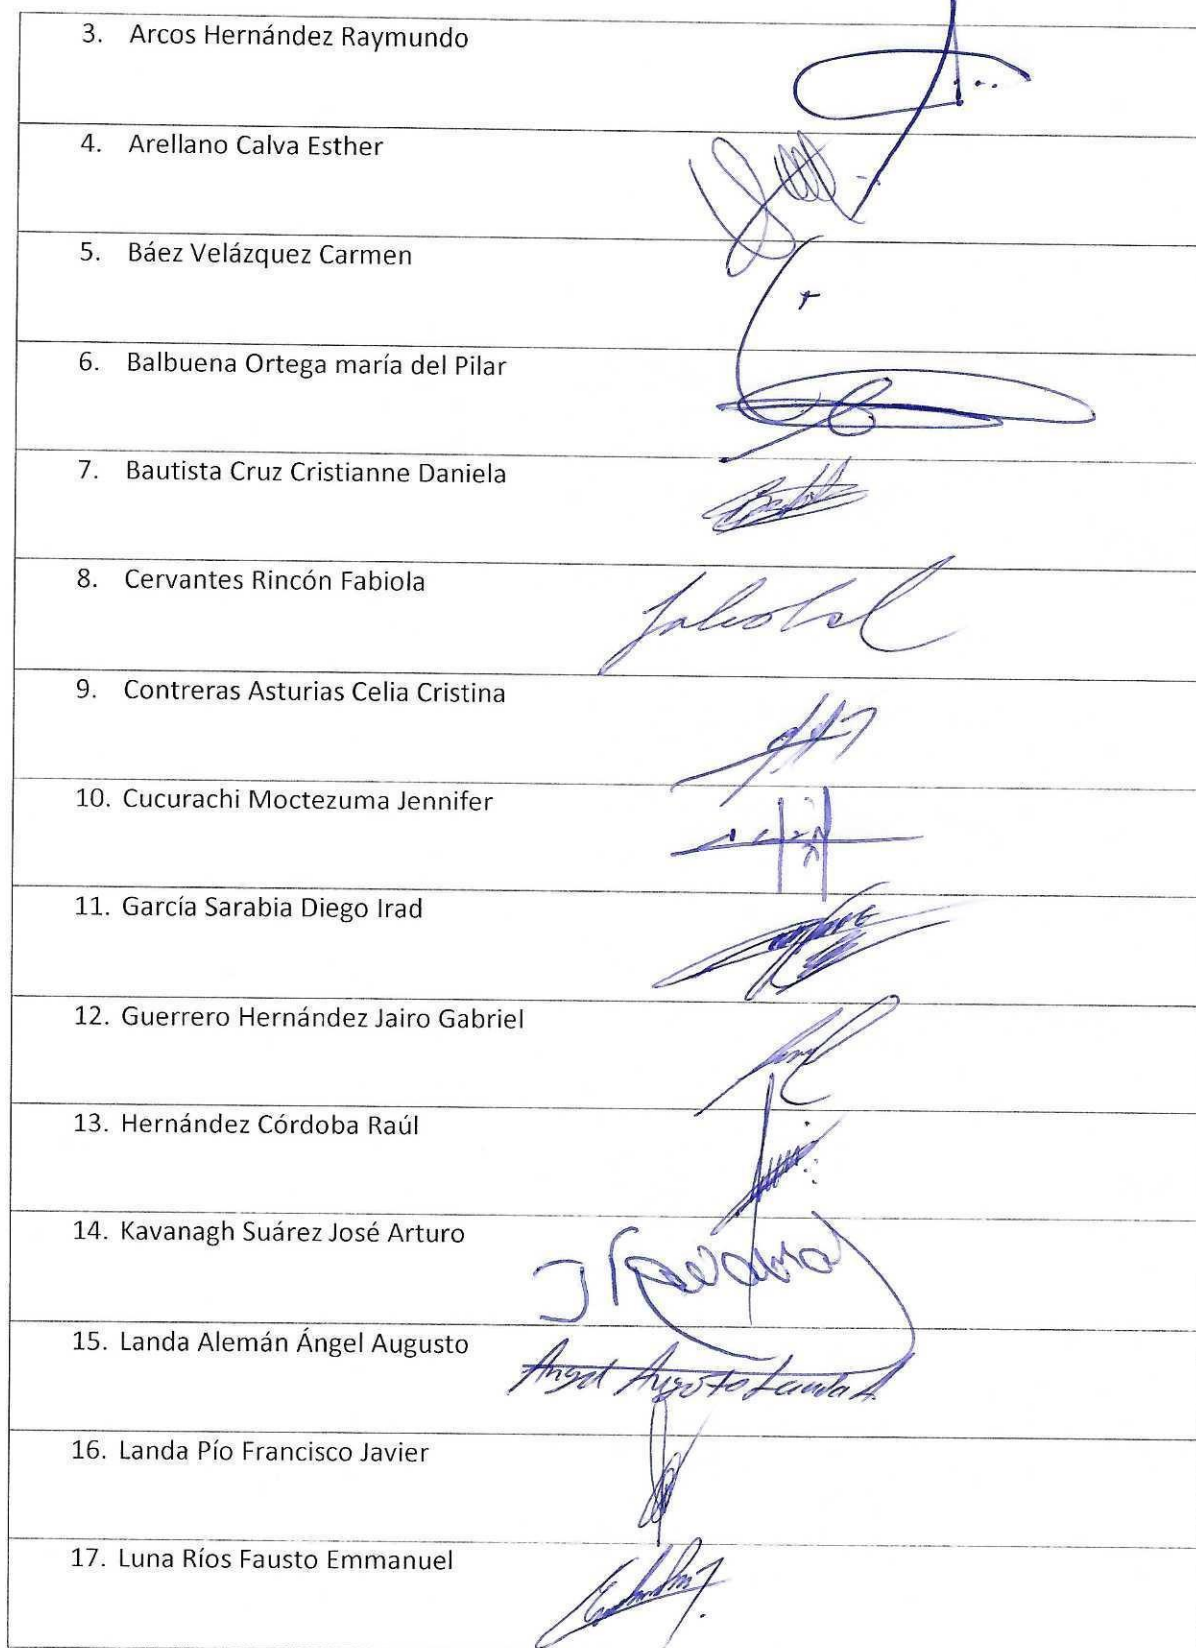 3. Arcos Hernández Raymundo
4. Arellano Calva Esther
5. Báez Velázquez Carmen
6. Balbuena Ortega maría del Pilar
7. Bautista Cruz Cristianne Daniela
8. Cervantes Rincón Fabiola
9. Contreras Asturias Celia Cristina
10. Cucurachi Moctezuma Jennifer
11. García Sarabia Diego Irad
12. Guerrero Hernández Jairo Gabriel
13. Hernández Córdoba Raúl
14. Kavanagh Suárez José Arturo
15. Landa Alemán Ángel Augusto
Angel Augusto Landa A.
16. Landa Pío Francisco Javier
17. Luna Ríos Fausto Emmanuel